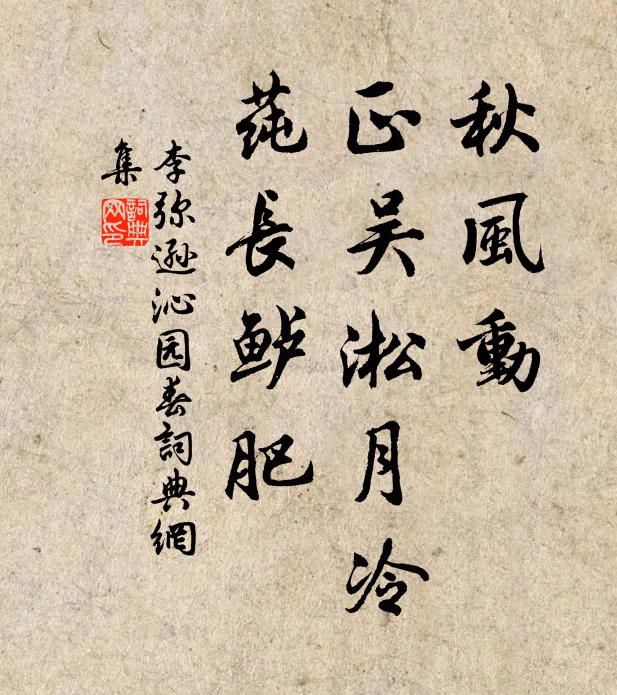 秋風動
正吴淞月冷
莼長鲈肥
李弥遜沁园春詞典網
集
詞典
网印